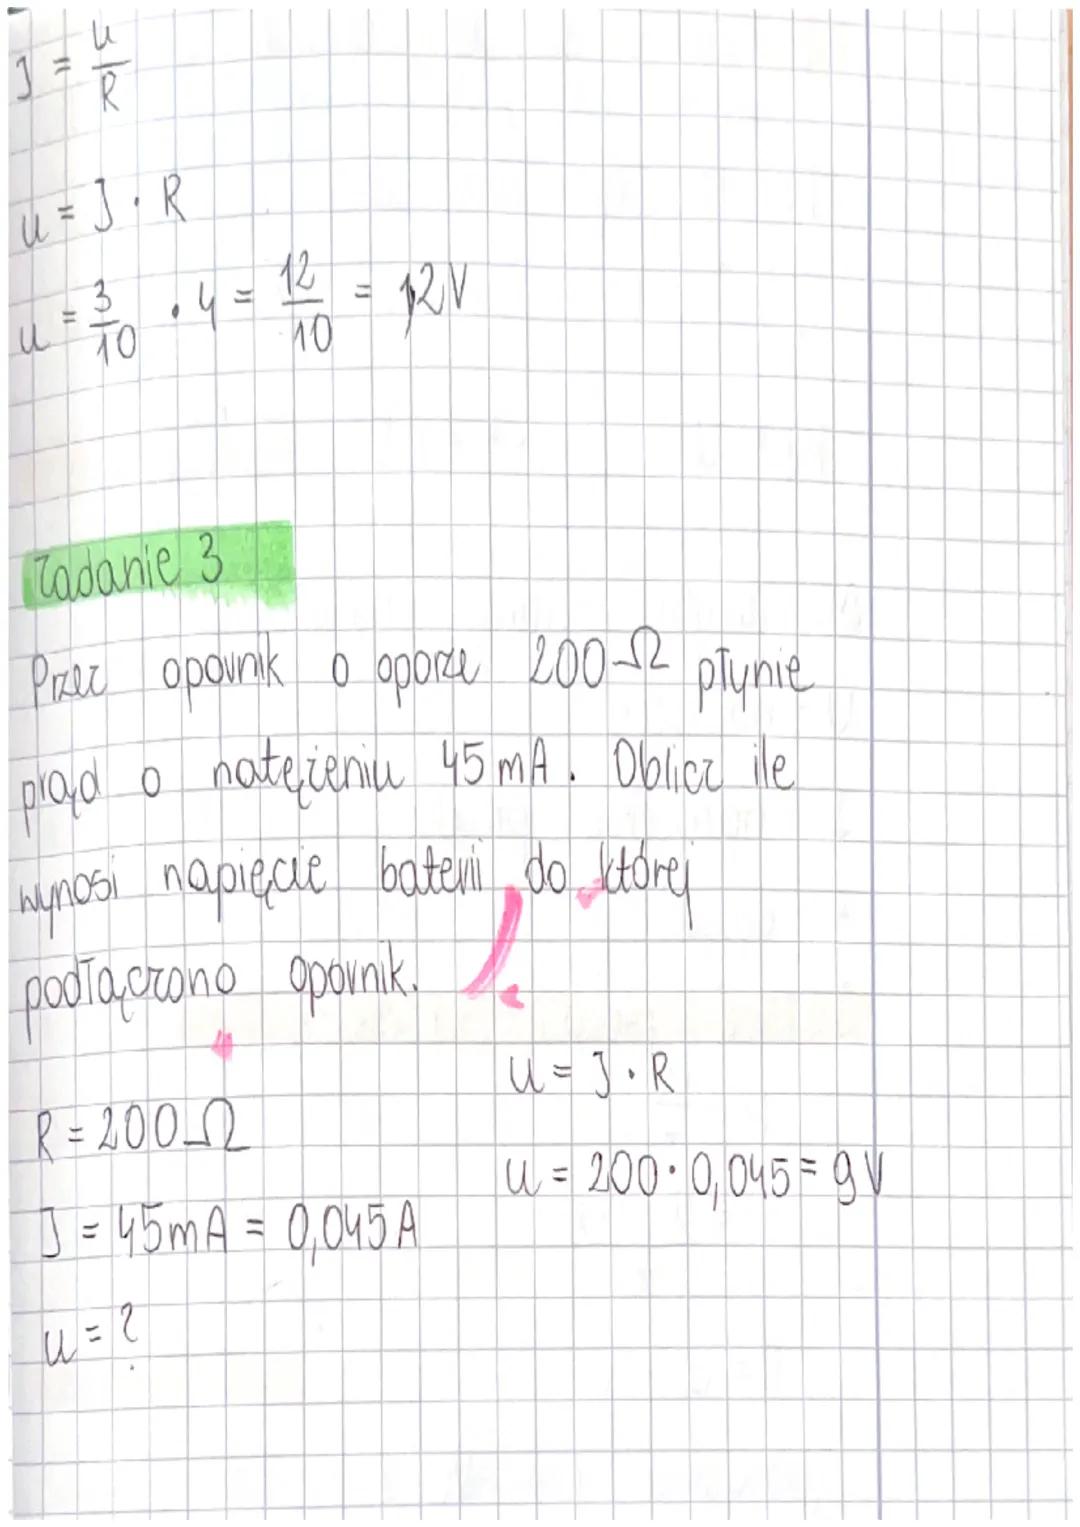 J = u/R
u = J · R
u = 3/10 · 4 = 12/10 = 1,2V
Zadanie 3
Przez opornik o oporze 200 Ω płynie
prąd o natężeniu 45 mA. Oblicz ile
wynosi napięcie baterii do której
podłączono opornik.
u = J · R
R = 200 Ω
u = 200 · 0,045 = 9V
J = 45mA = 0,045A
u = ?